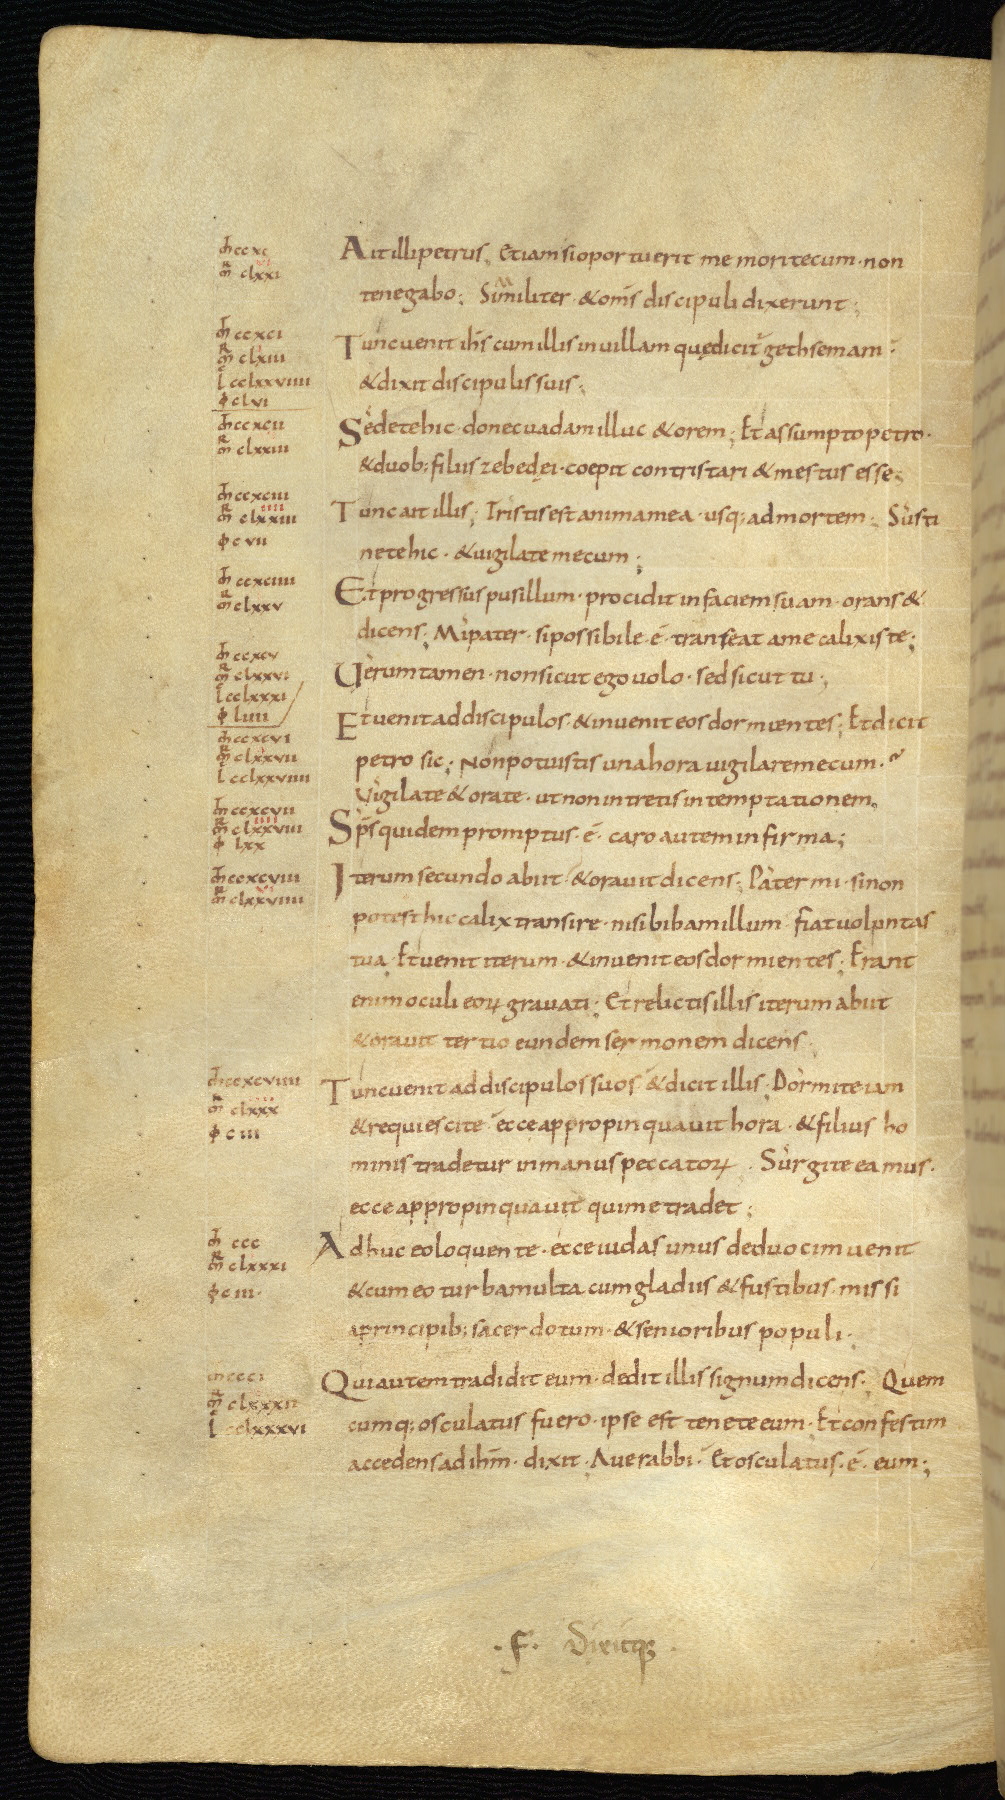 m̄ ccxc
mR clxxi
Ait illi petrus. Etiam si oportuerit me mori tecum · non
te negabo; Similiter · & om̄s discipuli dixerunt;
m̄ ccxci
mR clxiii
l cclxxviiii
φ clvi
Tunc uenit ih̄s cum illis in uillam quę dicit̄ gethsemani ·
& dixit discipulis suis;
m̄ ccxcii
mR clxxiii
Sedete hic donec uadam illuc & orem; Et assumpto petro ·
& duob; filiis zebedęi · coepit contristari & mestus esse;
m̄ ccxciii
mR clxxiii
φ c vii
Tunc ait illis; Tristis est anima mea · usq; ad mortem; Susti
nete hic · & uigilate mecum;
m̄ ccxciiii
mR clxxv
Et progressus pusillum · procidit in faciem suam · orans &
dicens; Mi pater · si possibile · ē · transeat a me calix iste;
m̄ ccxcv
mR clxxvi
l cclxxxi
φ liiii
Uerumtamen · non sicut ego uolo · sed sicut tu;
m̄ ccxcvi
mR clxxvii
l cclxxviiii
Et uenit ad discipulos · & inuenit eos dormientes; Et dicit
petro sic; Non potuistis una hora uigilare mecum ·
Vigilate & orate · ut non intretis in temptationem.
m̄ ccxcvii
mR clxxviii
φ lxx
Sp̄s quidem promptus · ē · caro autem infirma;
m̄ ccxcviii
mR clxxviiii
Iterum secundo abiit · & orauit dicens; Pater mi · si non
potest hic calix transire · nisi bibam illum fiat uoluntas
tua · Et uenit iterum · & inuenit eos dormientes; Erant
enim oculi eoꝝ grauati; Et relictis illis iterum abiit
& orauit tertio eundem sermonem dicens ·
m̄ ccxcviiii
mR clxxx
φ c iii
Tunc uenit ad discipulos suos · & dicit illis · Dormite iam
& requiescite ecce appropinquauit hora · & filius ho
minis tradetur in manus peccatoꝝ · Surgite eamus ·
ecce appropinquauit qui me tradet;
m̄ ccc
mR clxxxi
φ c iii ·
Adhuc eo loquente · ecce iudas unus de duocim uenit
& cum eo turba multa cum gladiis & fustibus · missi
a principib; sacerdotum · & senioribus populi ·
m ccci
mR clxxxii
l cclxxxvi
Qui autem tradidit eum · dedit illis signum dicens · Quem
cumq; osculatus fuero · ipse est tenete eum · Et confestim
accedens ad ih̄m · dixit · Aue rabbi · Et osculatus · ē · eum;
· F · Dixitq;